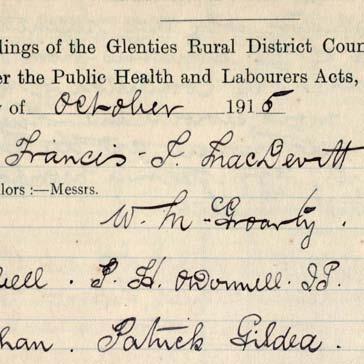 dings of the Glenties Rural District Coun
er the Public Health and Labourers Acts,
y of October 1915
Francis J. MacDevitt
lors :—Messrs.
W. McGroarty .
ell . P. H. O'Donnell . J.P.
han . Patrick Gildea .